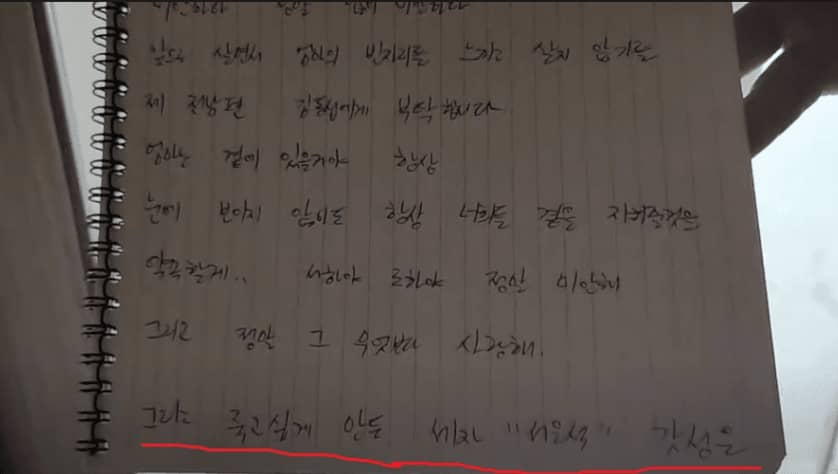 앞으로 살면서 엄마의 빈자리를 느끼고 살지 않기를
제 전남편 에게 부탁합니다
엄마는 곁에 있을거야 항상
눈에 보이지 않아도 항상 너희들 곁을 지켜줄것을
약속할게.. 서하야 로하야 정말 미안해
그리고 정말 그 무엇보다 사랑해.
그리고 죽고싶게 만든 세자